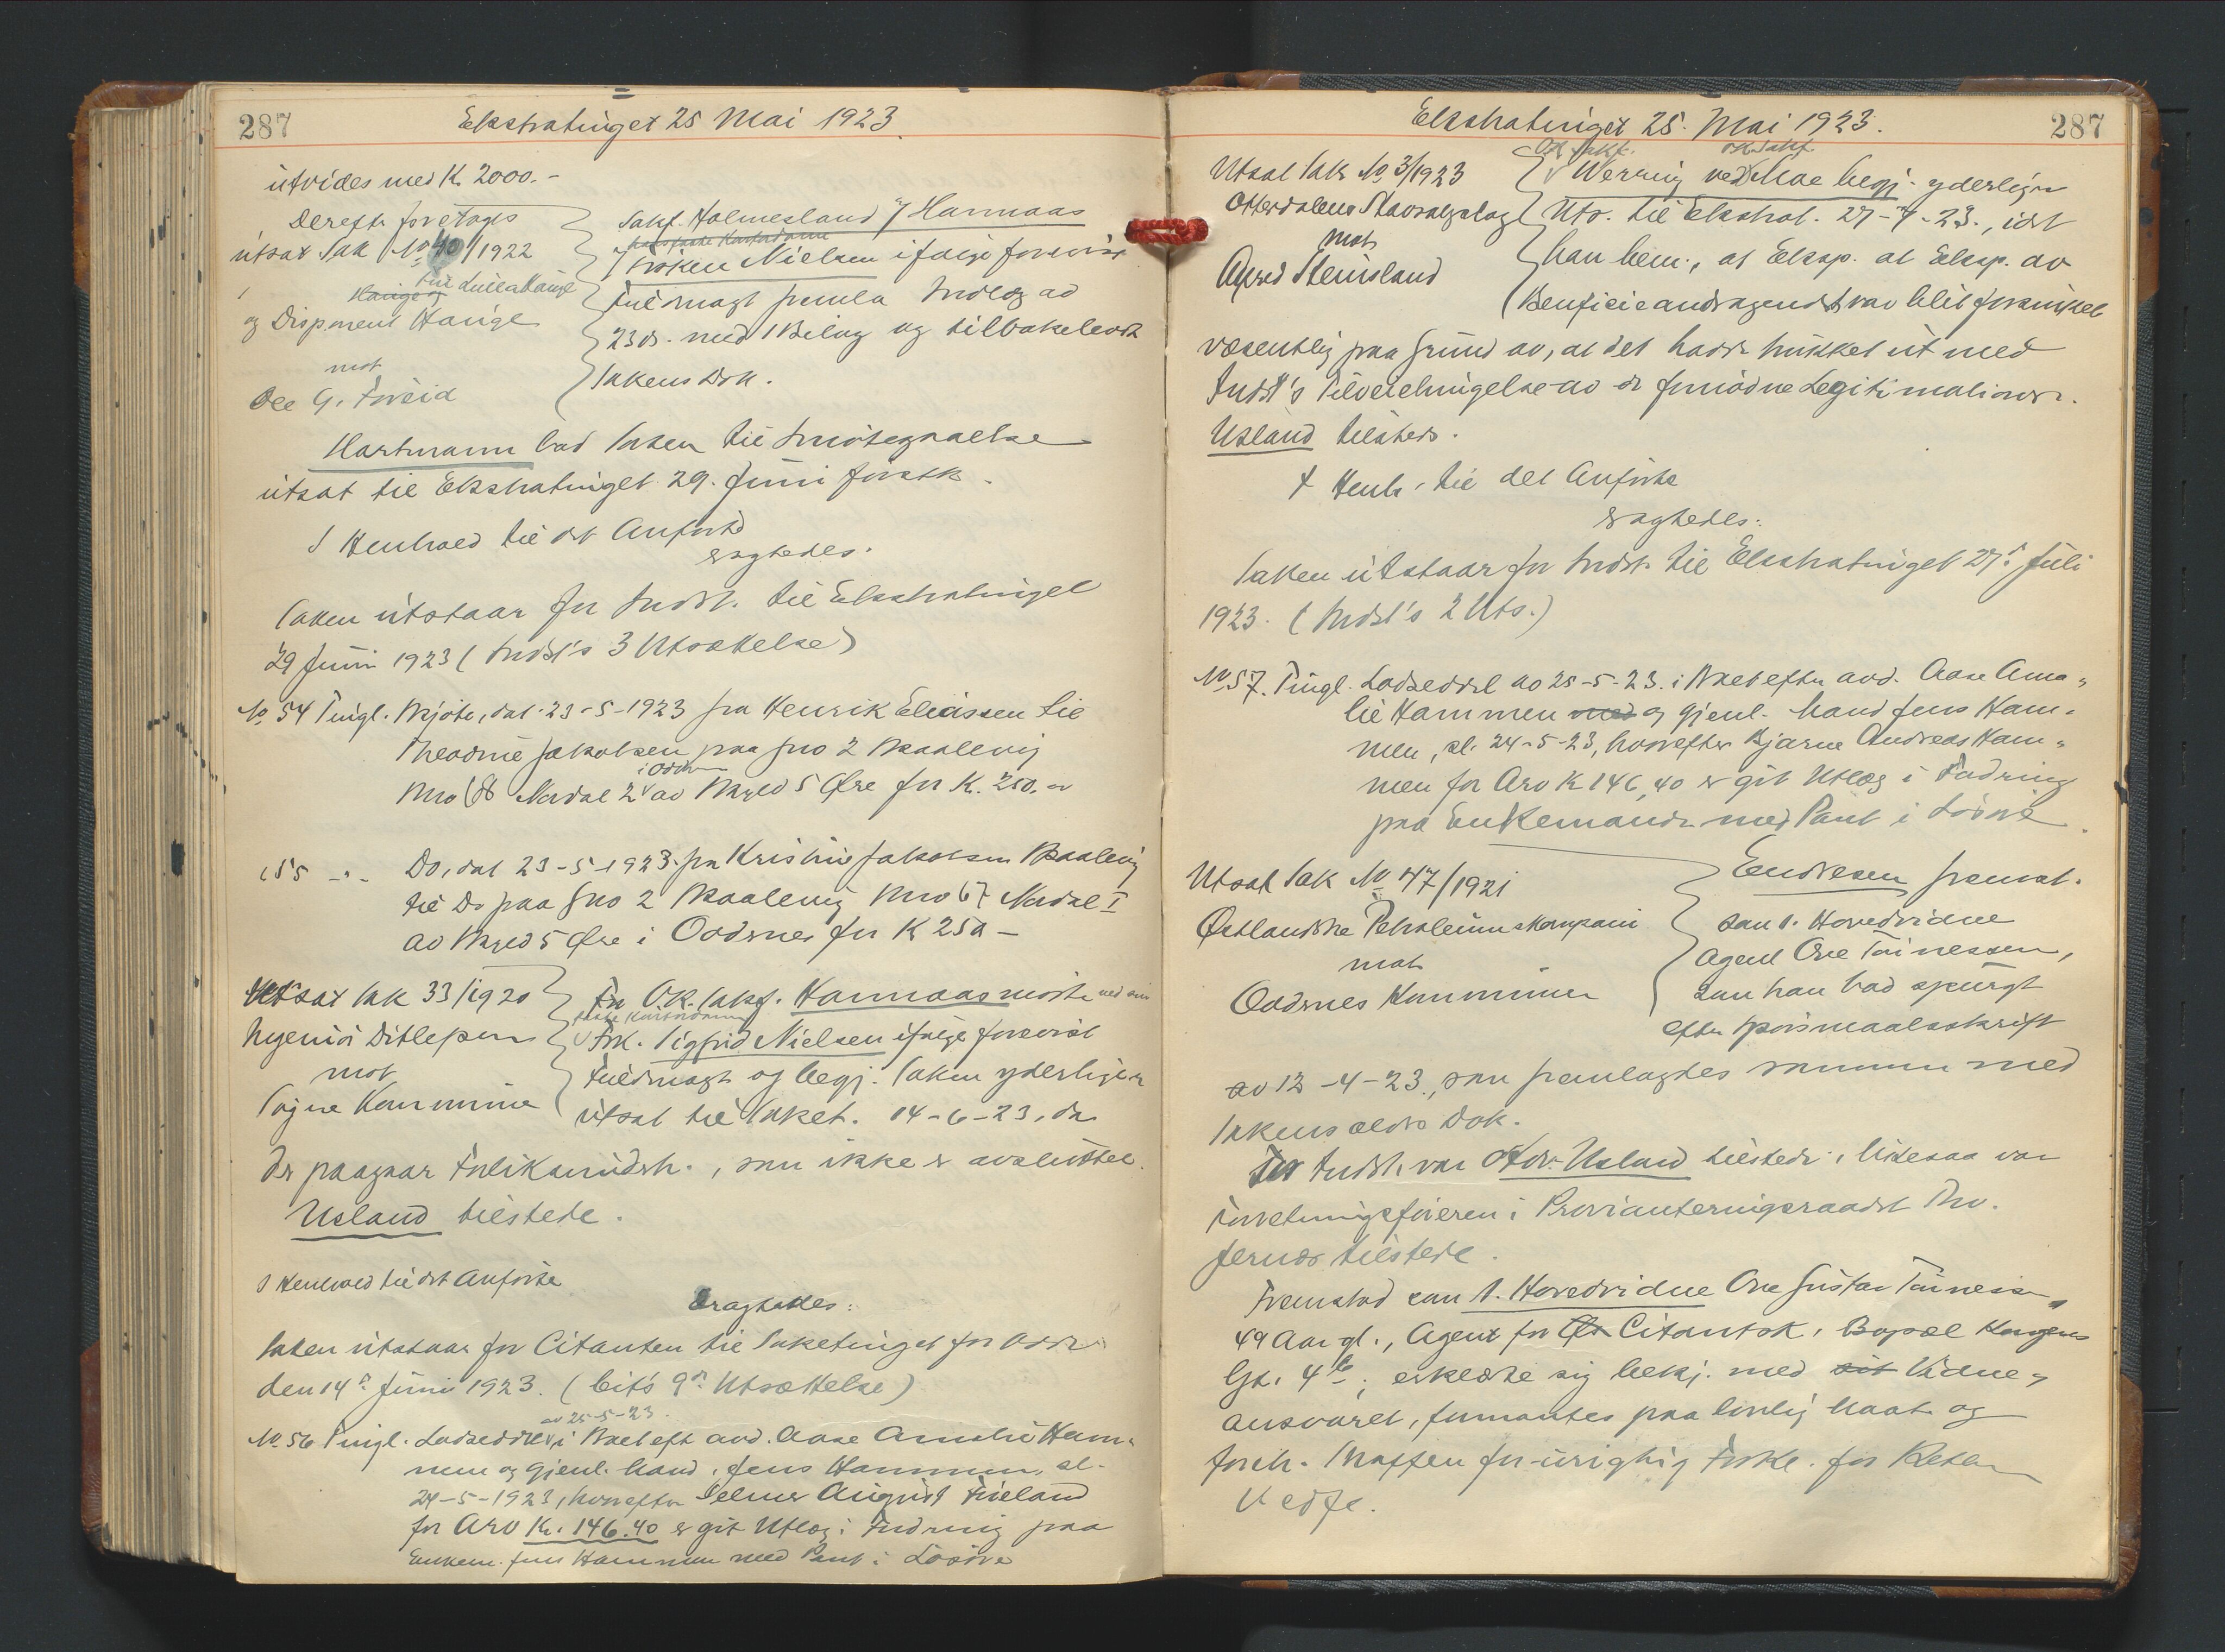 287
Ekstratinget 25 Mai 1923.
utvides med K. 2000.-
Derefter foretages
utsat Sak No 40/1922
Fru Luella Hauge
og Disponent Hauge
mot
Ole G. Tveid
Sakf. Holmesland v/ Hannaas
v/ Frøken Nielsen ifølge forevist
Fuldmagt fremla Indlæg av
23 ds. med 1 Bilag og tilbakeleverte
Sakens Dok.
Hartmann bad Saken til Imøtegaaelse
utsat til Ekstratinget 29. Juni førstk.
I Henhold til det Anførte
eragtedes:
Saken utstaar for Indst. til Ekstratinget
29 Juni 1923 (Indst's 3 Utsættelse)
No 54 Tingl. Skjøte, dat. 23-5-1923 fra Henrik Eliassen til
Theodine Jakobsen paa Gno 2 Skaalevig
Bno 68 Nordal 2 i Oddernes av Skyld 5 Øre for K. 250.-
" 55 -"- Do, dat 23-5-1923 fra Kristine Jakobsen Skaalevig
til Do paa Gno 2 Skaalevig Bno 67 Nordal I
av Skyld 5 Øre i Oddernes for K 250-
Utsat Sak 33/1920
Ingeniør Ditlefsen
mot
Søgne Kommune
For O.R. Sakf. Hannaas møtte ved sin
faste Kontordame
Frk. Sigfrid Nielsen ifølge forevist
Fuldmagt og begj. Saken yderligere
utsat til Saket. 14-6-23, da
der paagaar Forliksunderh., som ikke er avsluttet.
Usland tilstede.
I Henhold til det Anførte
Eragtedes:
Saken utstaar for Citanten til Saketinget for Oddernes
den 14de Juni 1923. (Cit's 9de Utsættelse)
av 25-5-23.
No. 56 Tingl. Lodseddel i Boet eft. avd. Aase Amalie Ham-
men og gjenl. Mand, Jens Hammen, sl.
24-5-1923, hvorefter Selmer August Fuieland
for Arv Kr. 146.40 er git Utlæg i Fordring paa
Enkem. Jens Hammen med Pant i Løsøre
Ekstratinget 25. Mai 1923.
287
Utsat Sak No 3/1923
Otterdalens Skovsalgslag
mot
Alfred Stensland
OR Sakf. OR Sakf.
Werring ved Moe begj. yderligere
Uts. til Ekstrat. 27-7-23., idet
han bem., at Eksp. av
Beneficieandragendet var blit forsinket
væsentlig paa Grund av, at det hadde trukket ut med
Indst's Tilveiebringelse av de fornødne Legitimationer.
Usland tilstede.
I Henh. til det Anførte
eragtedes:
Saken utstaar for Indst. til Ekstratinget 27de Juli
1923. (Indst's 2 Uts.)
No 57. Tingl. Lodseddel av 25-5-23. i Boet efter avd. Aase Ama-
lie Hammen med og gjenl. Mand Jens Ham-
men, sl. 24-5-23, hvorefter Bjarne Andreas Ham-
men for Arv K 146,40 er git Utlæg i Fordring
paa Enkemanden med Pant i Løsøre.
Utsat Sak No 47/1921
Østlandske Petroleumskompani
mot
Oddernes Kommune
Endresen fremst.
som 1. Hovedvidne
Agent Ove Tønnessen,
som han bad spurgt
efter Spørsmaalsskrift
av 12-4-23, som fremlagdes sammen med
Sakens ældre Dok.
For Indst. var Odv. Usland tilstede, likesaa var
Forretningsføreren i Provianteringsraadet Thv.
Jernæs tilstede.
Fremstod som 1. Hovedvidne Ove Gustav Tønnessen,
49 Aar gl., Agent for Citantsk., Bopæl Kongens
Gt. 4b; erklærte sig bekj. med sit Vidne-
ansvaret, formantes paa lovlig Maate og
foreh. Straffen for urigtig Forkl. for Retten
Vedf.